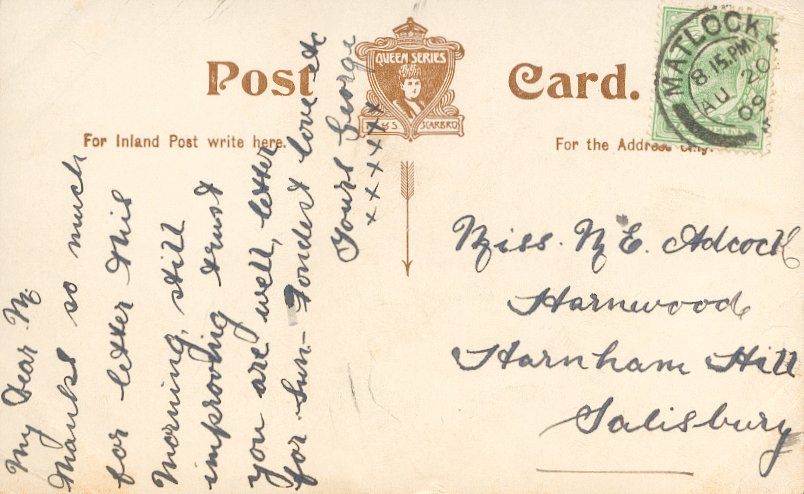 Post Card.
QUEEN SERIES
& S SCARBRO
For Inland Post write here.
For the Address Only.
MATLOCK
8.15.PM
AU 20
09
PENNY
My Dear M.
Thanks so much
for letter this
morning, still
improving trust
you are well, letter
for Sun- Fondest love etc
Yours George
xxxxxx
Miss. M E. Adcock
Harnwood
Harnham Hill
Salisbury